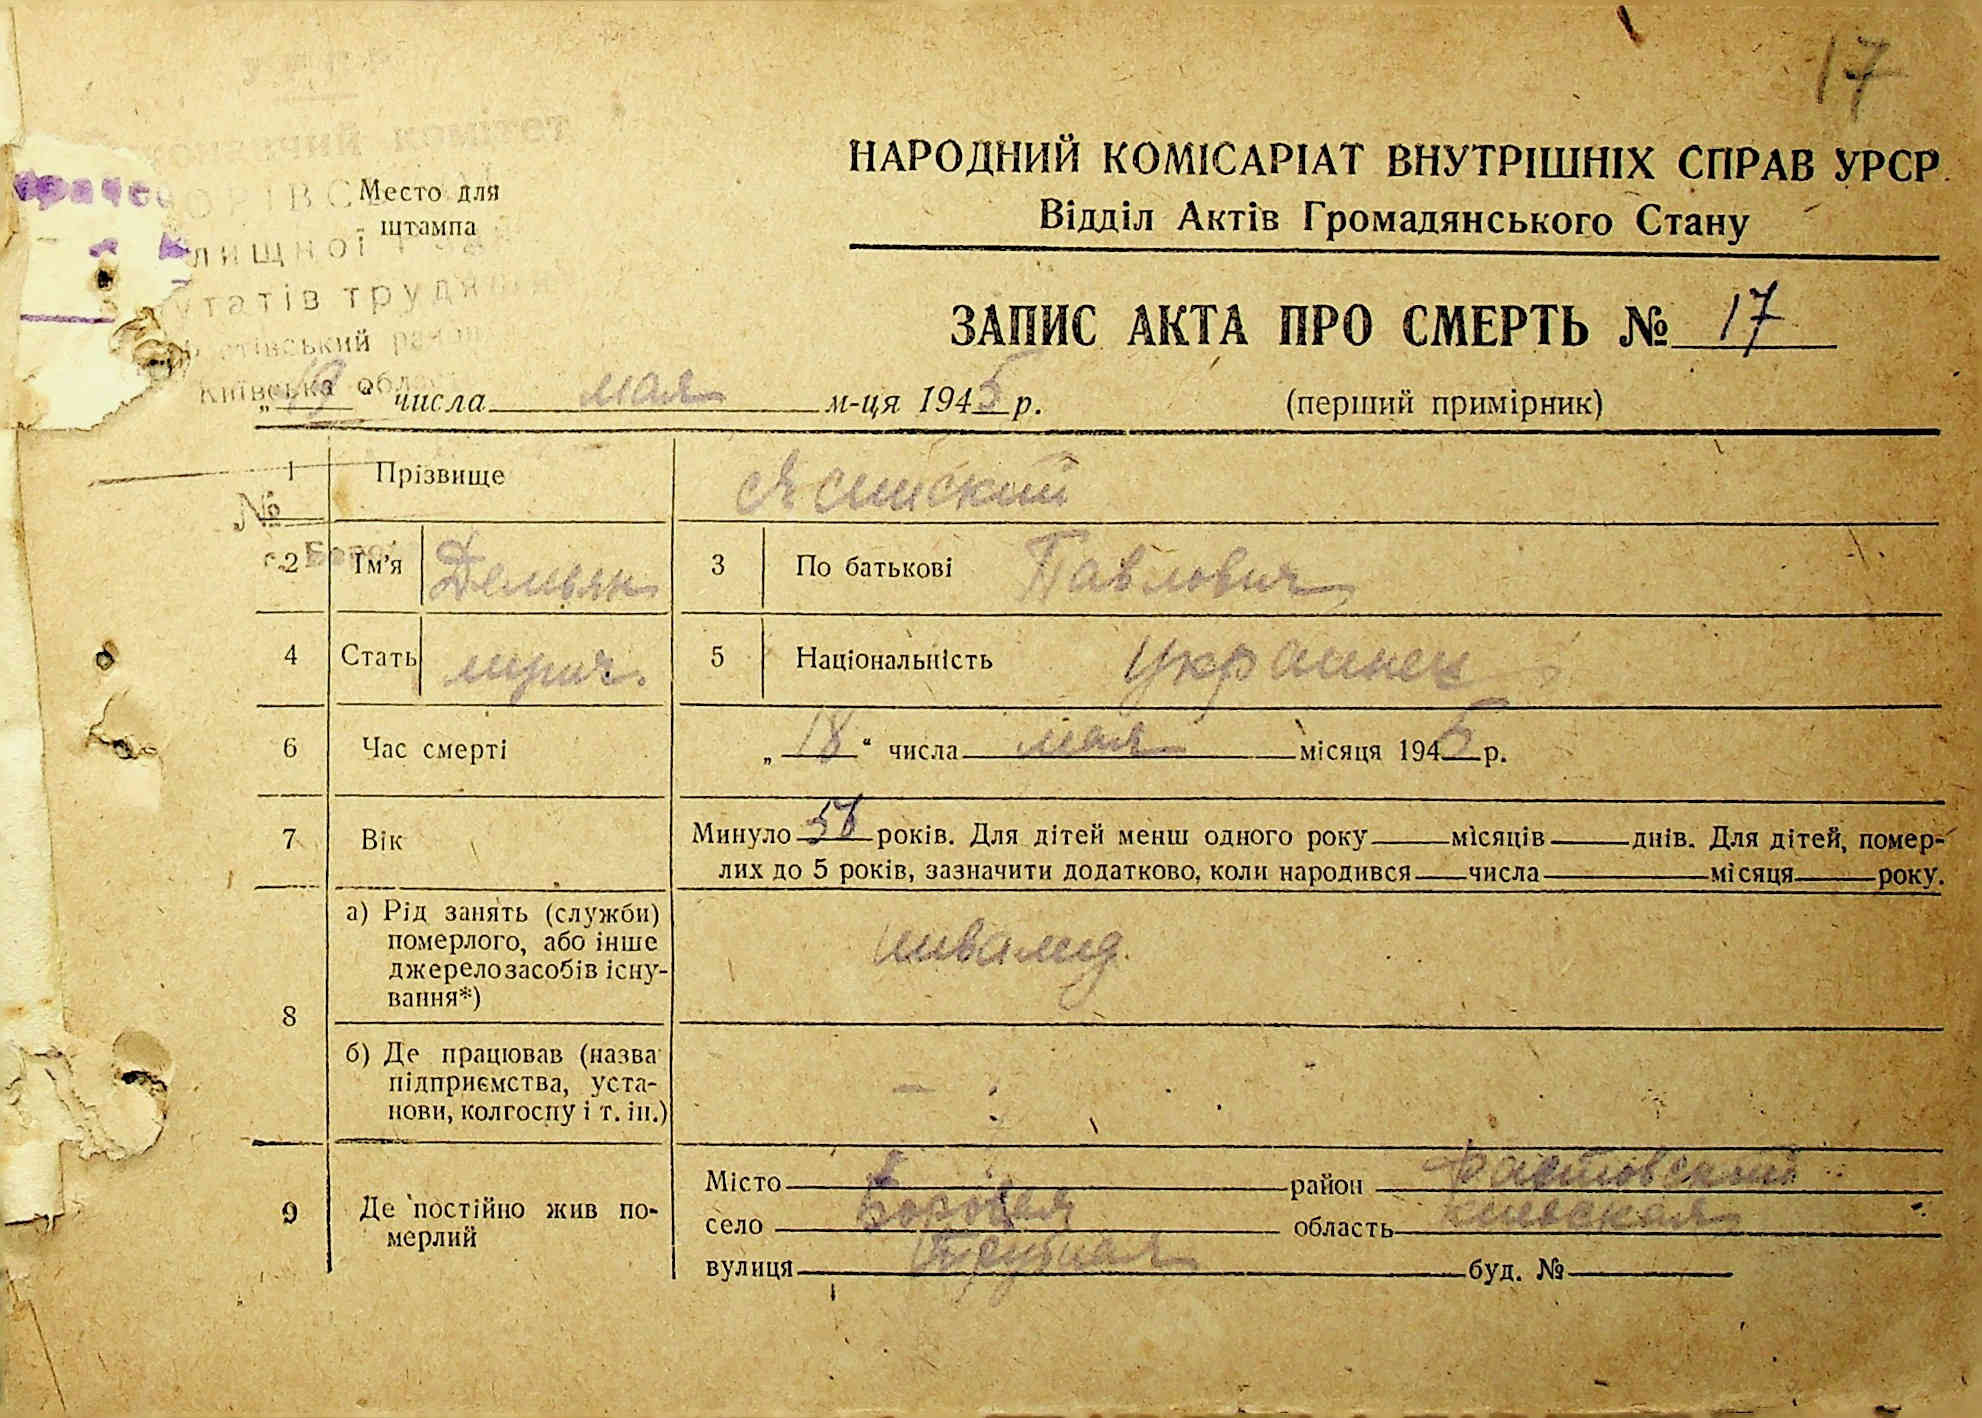 17
НАРОДНИЙ КОМІСАРІАТ ВНУТРІШНІХ СПРАВ УРСР
Відділ Актів Громадянського Стану
комітет
Место для
штампа
Київська
ЗАПИС АКТА ПРО СМЕРТЬ № 17
„ 19 “ числа мая м-ця 1945 р. (перший примірник)
1 Прізвище Ясинский
№
2 Ім’я Демьян 3 По батькові Павлович
4 Стать муж. 5 Національність Украинец
6 Час смерті „ 18 “ числа мая місяця 1945 р.
7 Вік Минуло 56 років. Для дітей менш одного року місяців днів. Для дітей, помер-
лих до 5 років, зазначити додатково, коли народився числа місяця року.
8 а) Рід занять (служби)
померлого, або інше
джерело засобів існу-
вання*)
инвалид
б) Де працював (назва
підприємства, уста-
нови, колгоспу і т. ін.)
—
9 Де постійно жив по-
мерлий
Місто район Фастовский
село Боровая область Киевская
вулиця буд. №